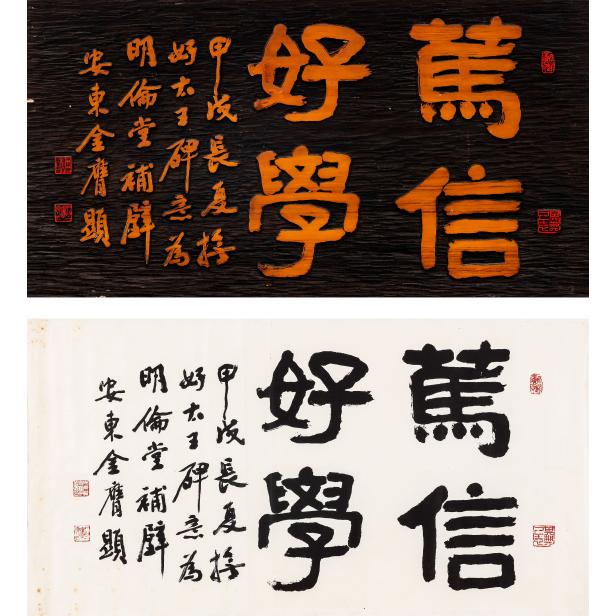 篤信
好學
甲戌長夏
好太王碑意為
明倫堂補壁
安東金膺顯
篤信
好學
甲戌長夏
好太王碑意為
明倫堂補壁
安東金膺顯